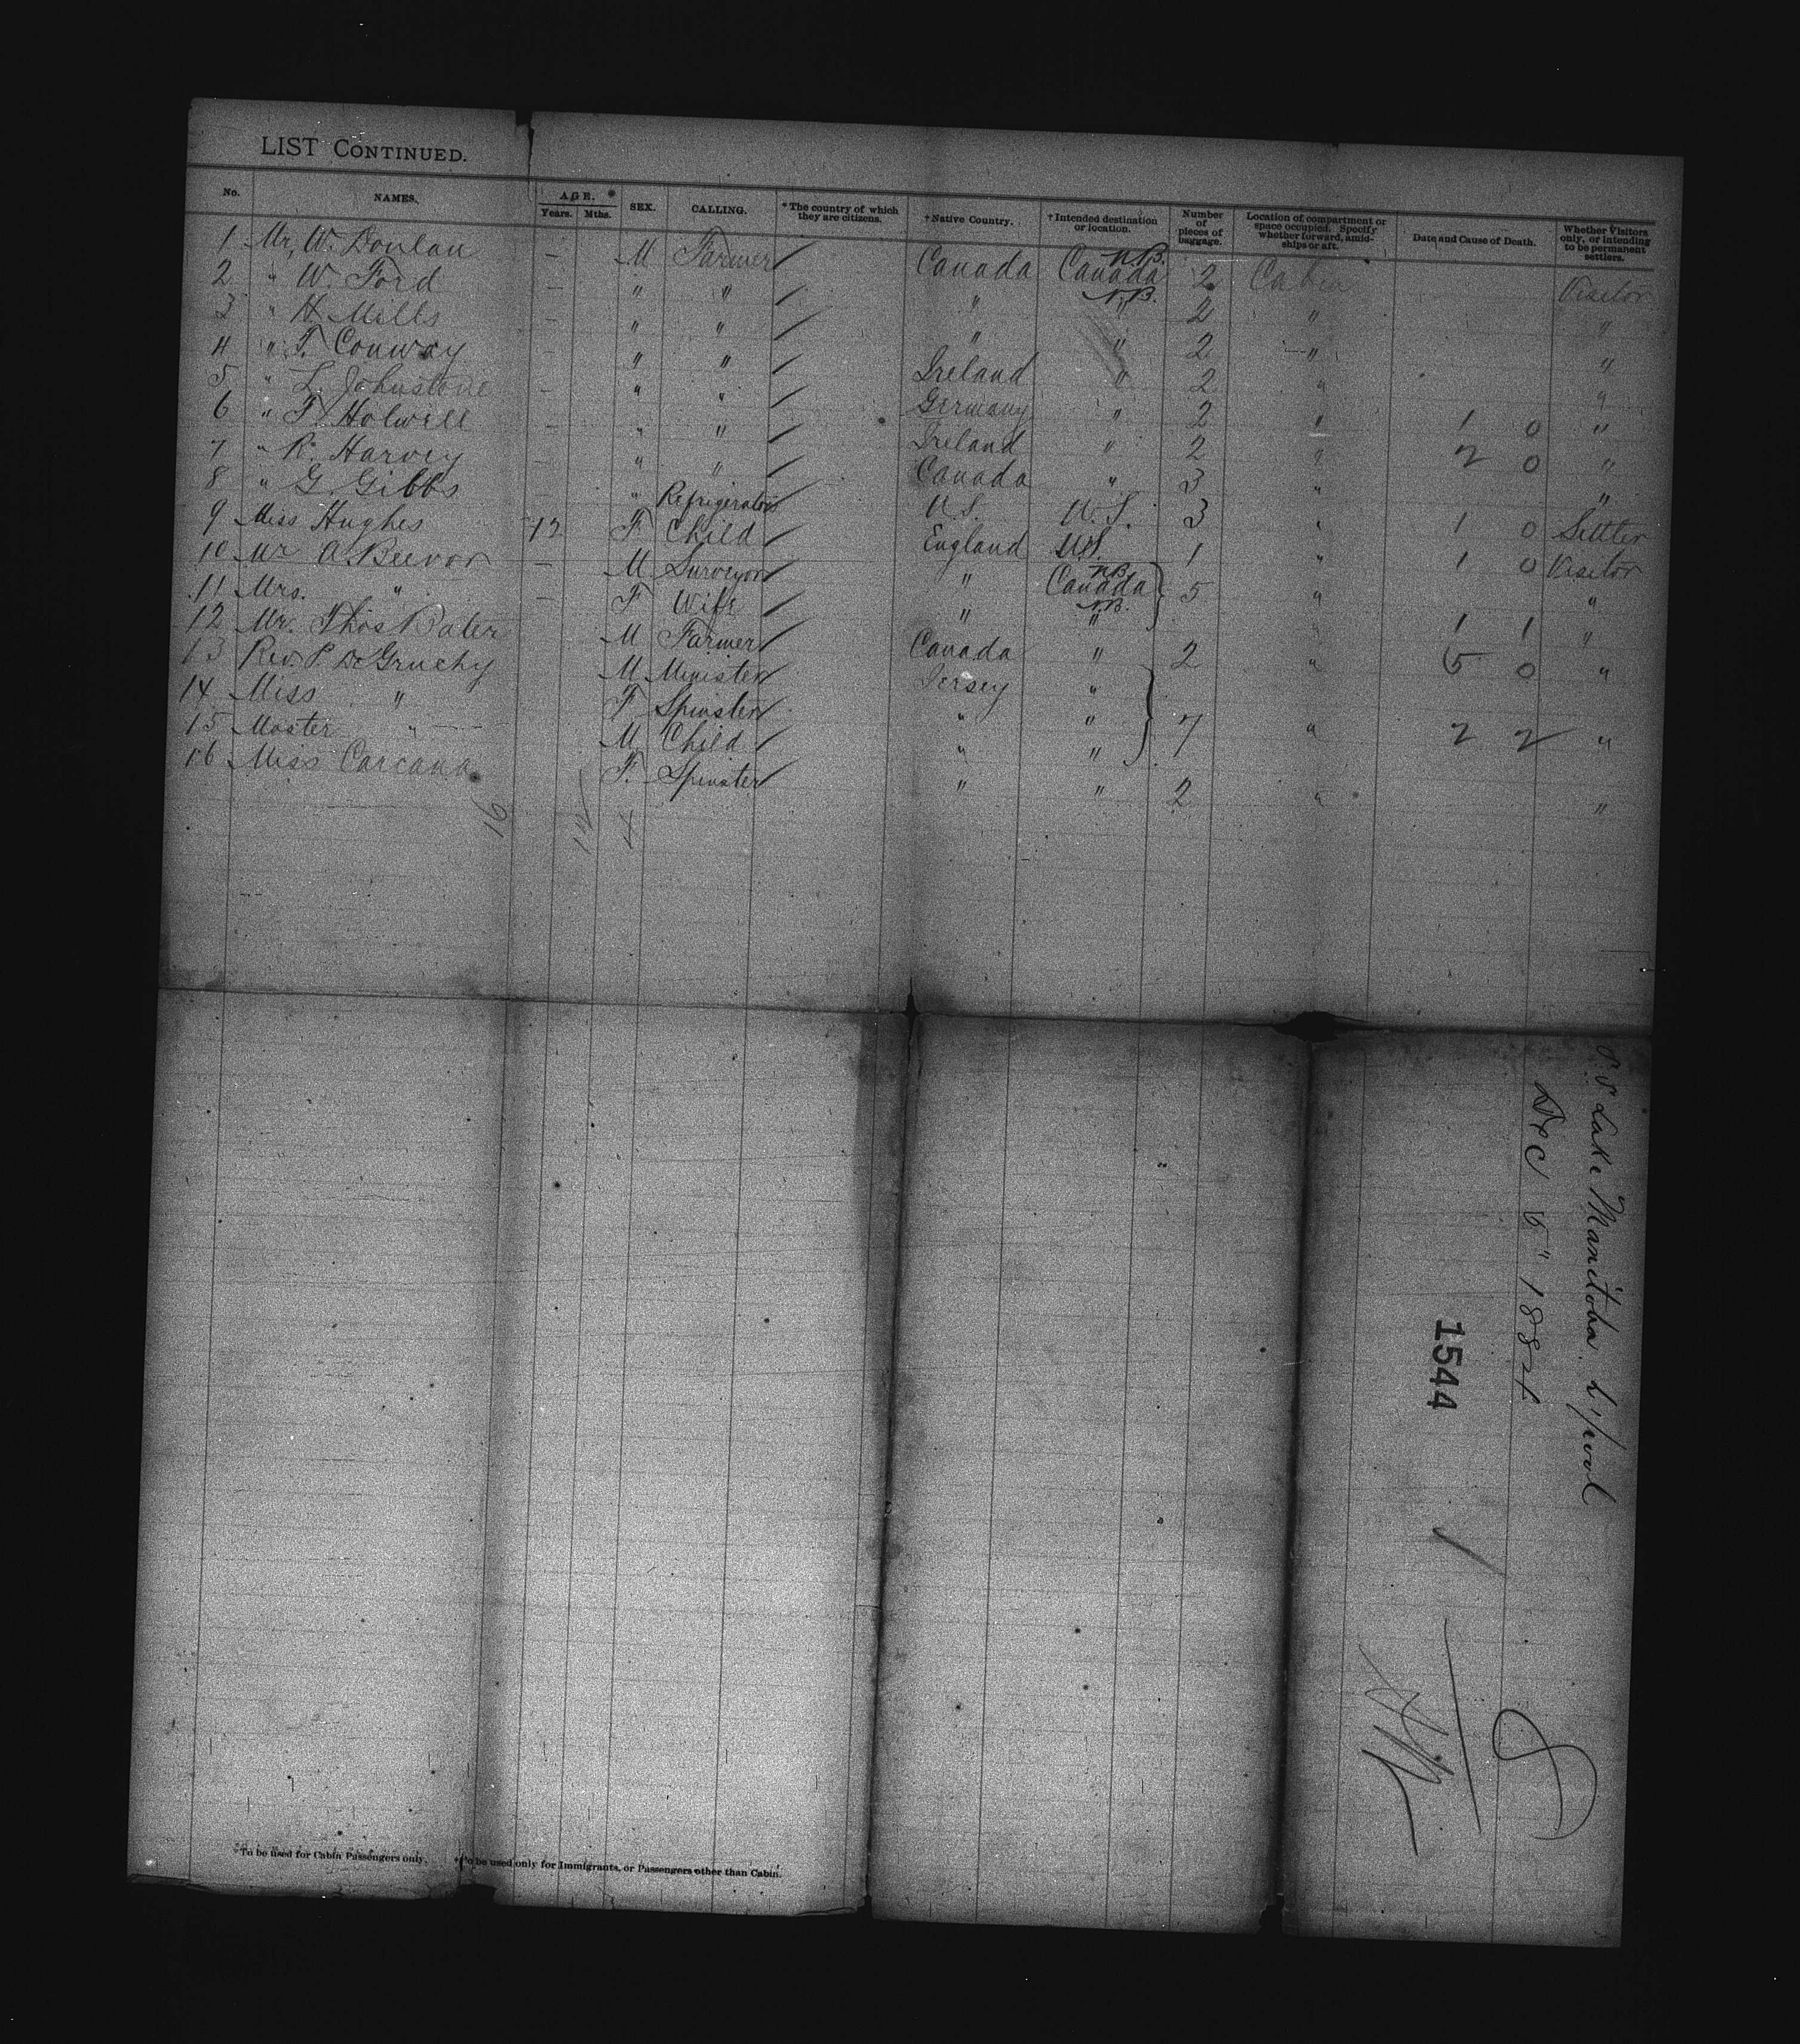 LIST CONTINUED.
No. NAMES. AGE. Years. Mths. SEX. CALLING. *The country of which they are citizens. †Native Country. †Intended destination or location. Number of pieces of baggage. Location of compartment or space occupied. Specify whether forward, amidships or aft. Date and Cause of Death. Whether Visitors only, or intending to be permanent settlers.
1 Mr. W. Donlan — M Farmer / Canada Canada N.B. 2 Cabin Visitor
2 " W. Ford — " " / " " N.B. 2 " "
3 " H. Mills — " " / " " 2 " "
4 " T. Conway — " " / Ireland " 2 " "
5 " L. Johnstone — " " / Germany " 2 " 1 0 "
6 " T. Holwell — " " / Ireland " 2 " 2 0 "
7 " R. Harvey — " " / Canada " 3 " "
8 " G. Gibbs — " Refrigerator / U.S. U.S. 3 " 1 0 Settler
9 Miss Hughes 12 F Child / England U.S. 1 " 1 0 Visitor
10 Mr A. Beevor — M Surveyor / " Canada N.B. 5 " "
11 Mrs. " — F Wife / " " N.B. " 1 1 "
12 Mr. Thos Bater M Farmer / Canada " 2 " 5 0 "
13 Rev. P. De Gruchy M Minister / Jersey "
14 Miss " F Spinster / " " 7 " 2 2 "
15 Master " M Child / " "
16 Miss Carcana F. Spinster / " " 2 " "
16
4
S.S. Lake Manitoba L'pool
Dec 5" 1884
1544
*To be used for Cabin Passengers only. †To be used only for Immigrants, or Passengers other than Cabin.